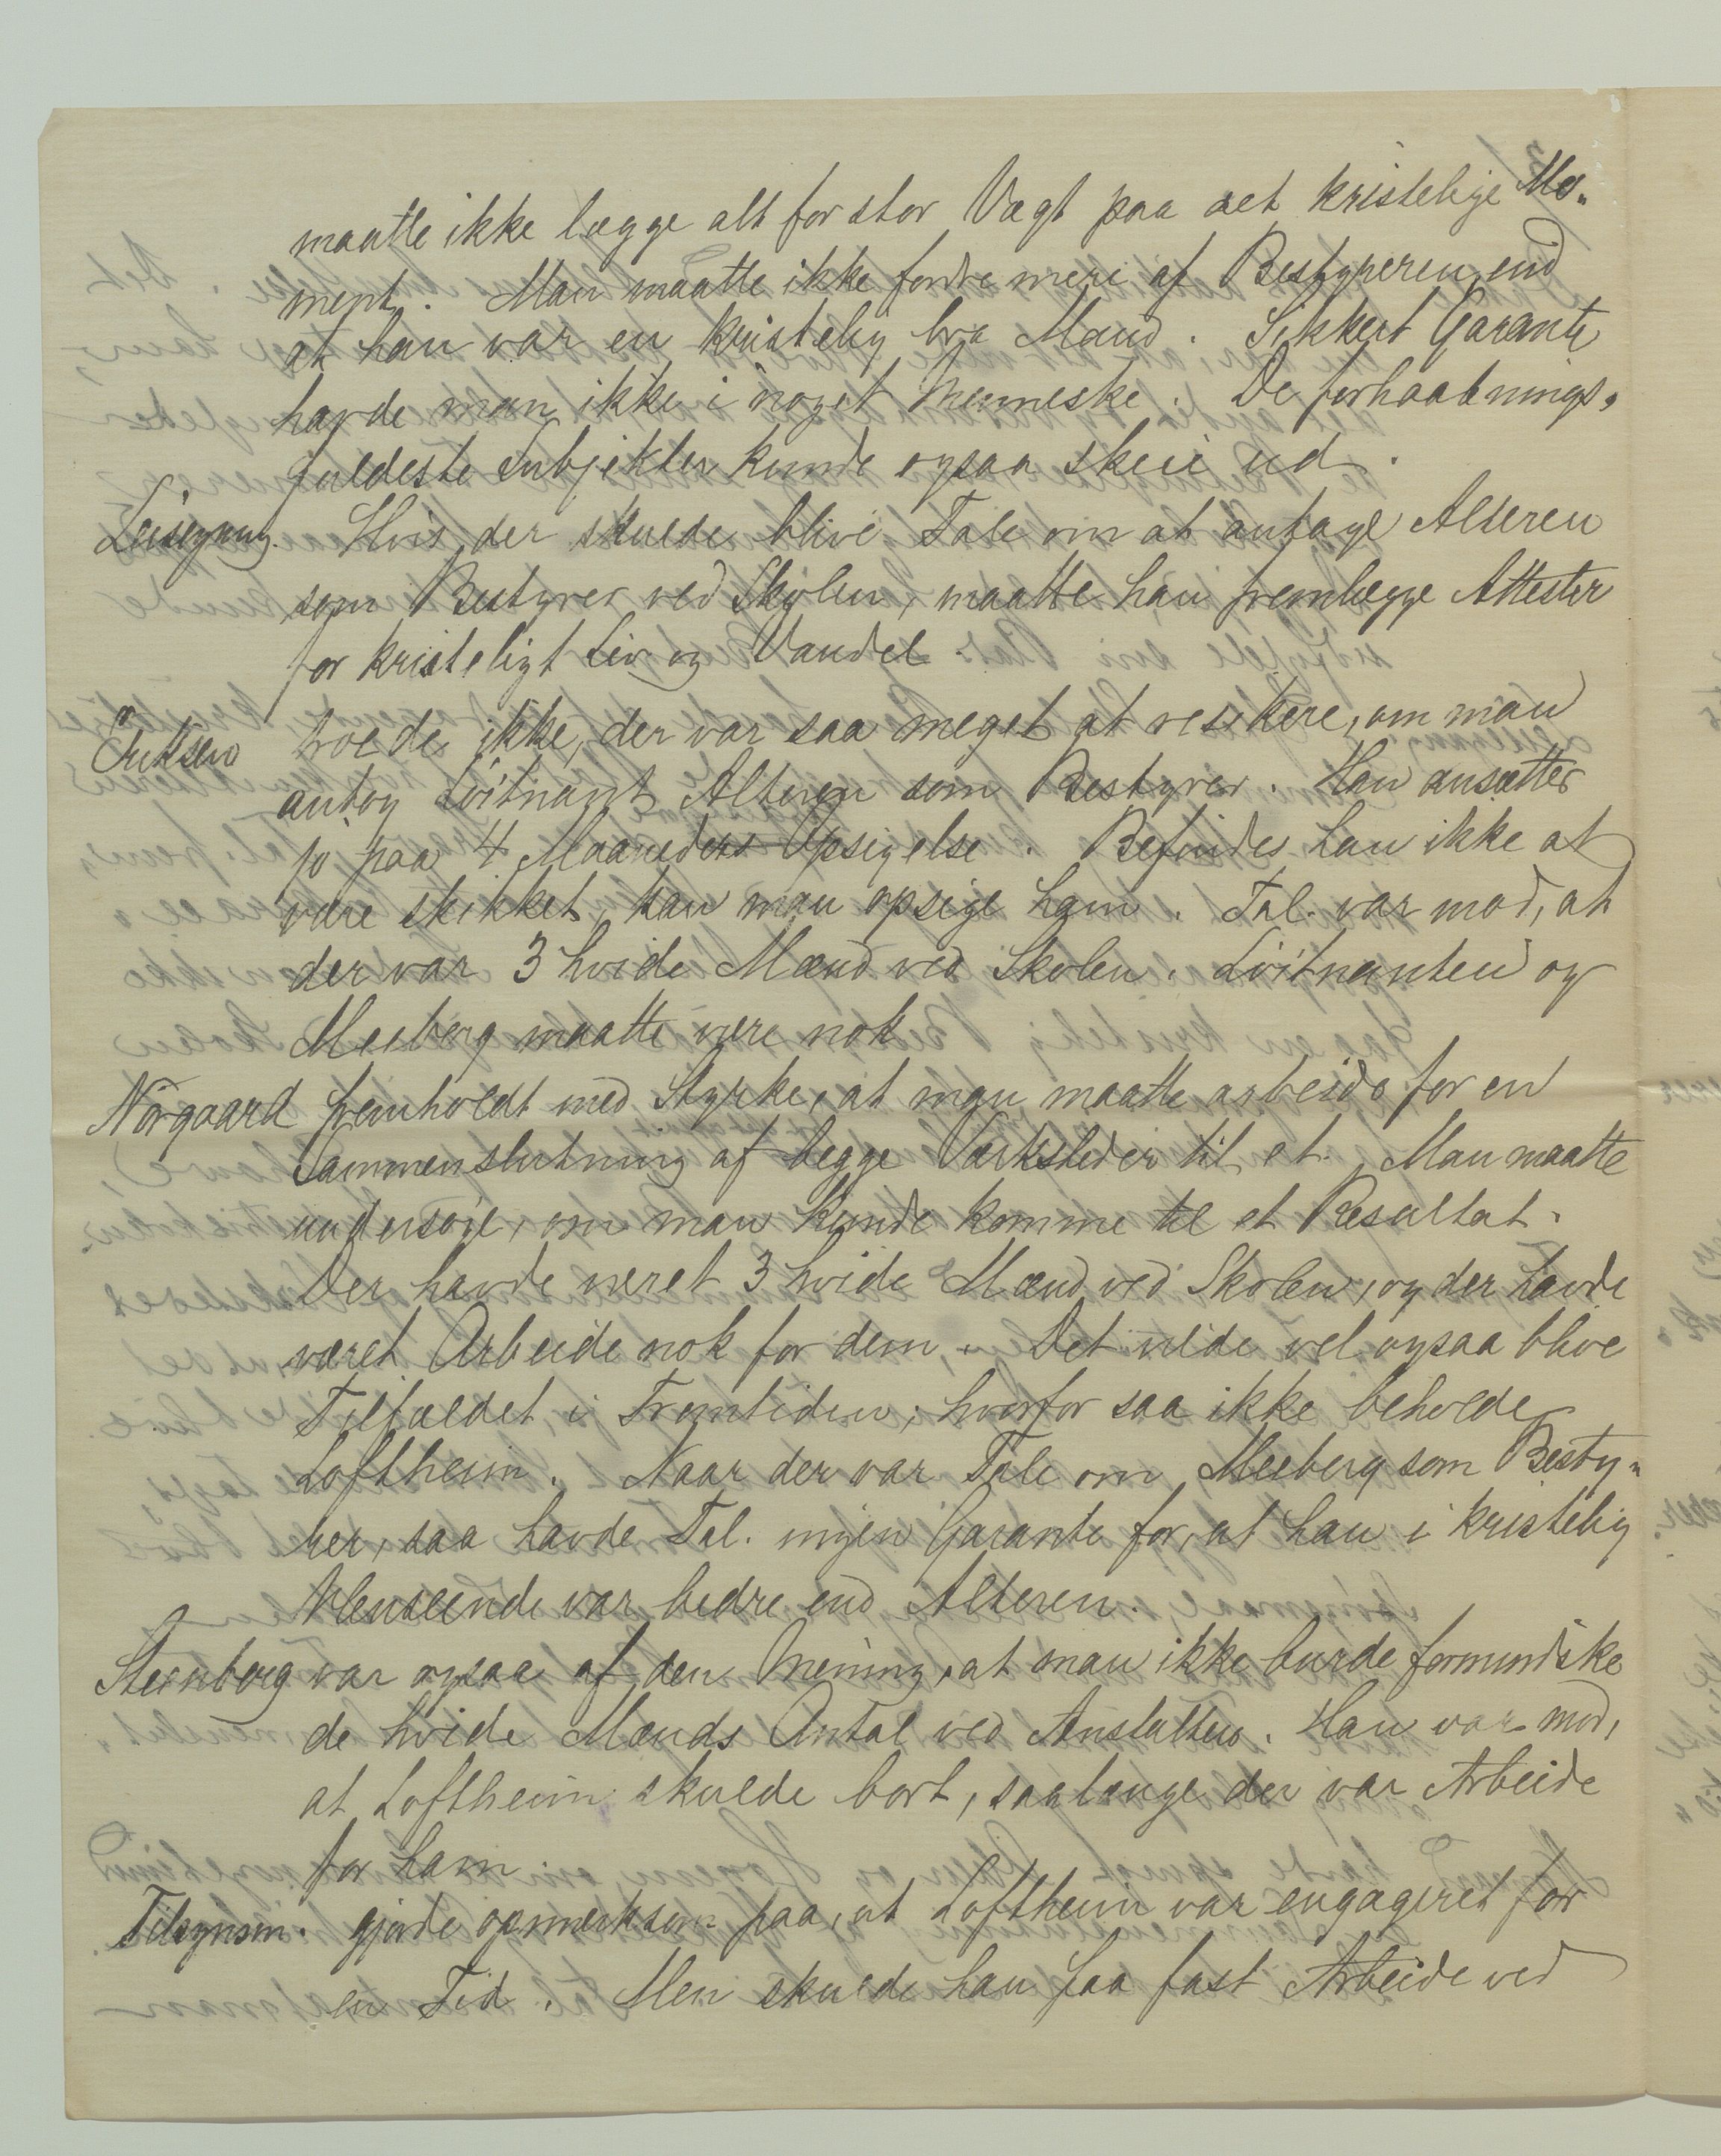 maatte ikke lægge alt for stor Vægt paa det kristelige Mo-
ment. Man maatte ikke fordre mere af Bestyreren, end
at han var en kristelig bra Mand. Sikkert Garanti
havde man ikke i noget Menneske. De forhaabnings-
fuldeste Subjekter kunde ogsaa skeie ud.
Leisegang. Hvis der skulde blive Tale om at antage Alteren
som Bestyrer ved Skolen, maatte han fremlægge Attester
for kristeligt Liv og Vandel.
Eriksen troede ikke, der var saa meget at resikere, om man
antog Löitnant Alteren som Bestyrer. Han ansættes
jo paa 4 Maaneders Opsigelse. Befindes han ikke at
være skikket, kan man opsige ham. Tal. var mod, at
der var 3 hvide Mænd ved Skolen. Löitnanten og
Meeberg maatte være nok
Nörgaard fremholdt med Styrke, at man maatte arbeide for en
Sammenslutning af begge Værksteder til et. Man maatte
undersöge, om man kunde komme til et Resultat.
Der havde været 3 hvide Mænd ved Skolen, og der havde
været Arbeide nok for dem. Det vilde vel ogsaa blive
Tilfældet i Fremtiden, hvorfor saa ikke beholde
Loftheim. Naar der var Tale om Meeberg som Besty-
rer, saa havde Tal. ingen Garanti for, at han i kristelig
Henseende var bedre end Alteren.
Sternberg var ogsaa af den Mening, at man ikke burde formindske
de hvide Mænds Antal ved Anstalten. Han var mod,
at Loftheim skulde bort, saalænge der var Arbeide
for ham.
Tilsynsm. gjorde opmerksom paa, at Loftheim var engageret for
en Tid. Men skulde han faa fast Arbeide ved